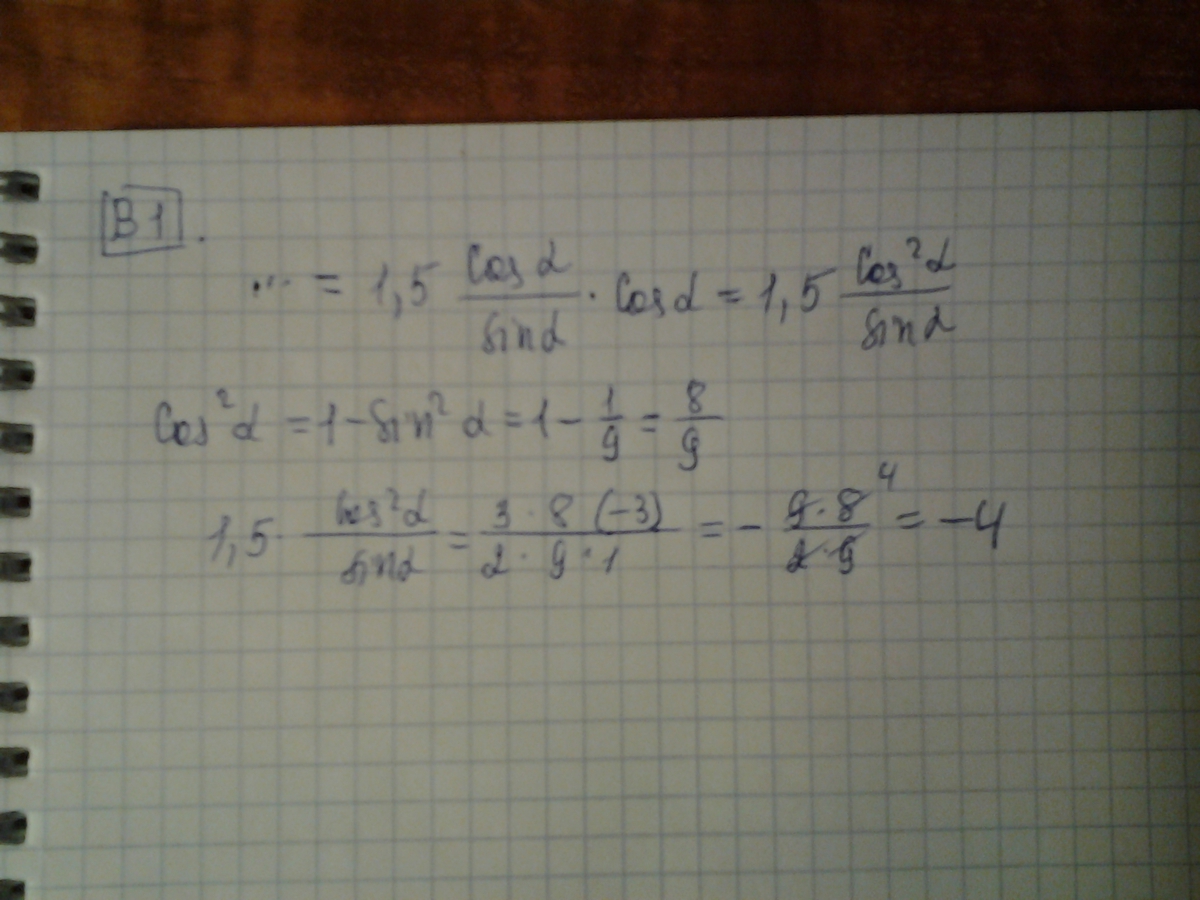 B1.
... = 1,5 cosα/sinα · cosα = 1,5 cos²α/sinα
cos²α = 1 - sin²α = 1 - 1/9 = 8/9
1,5 · cos²α/sinα = 3 · 8 (-3)/2 · 9 · 1 = - 9 · 8 4/2 · 9 = -4